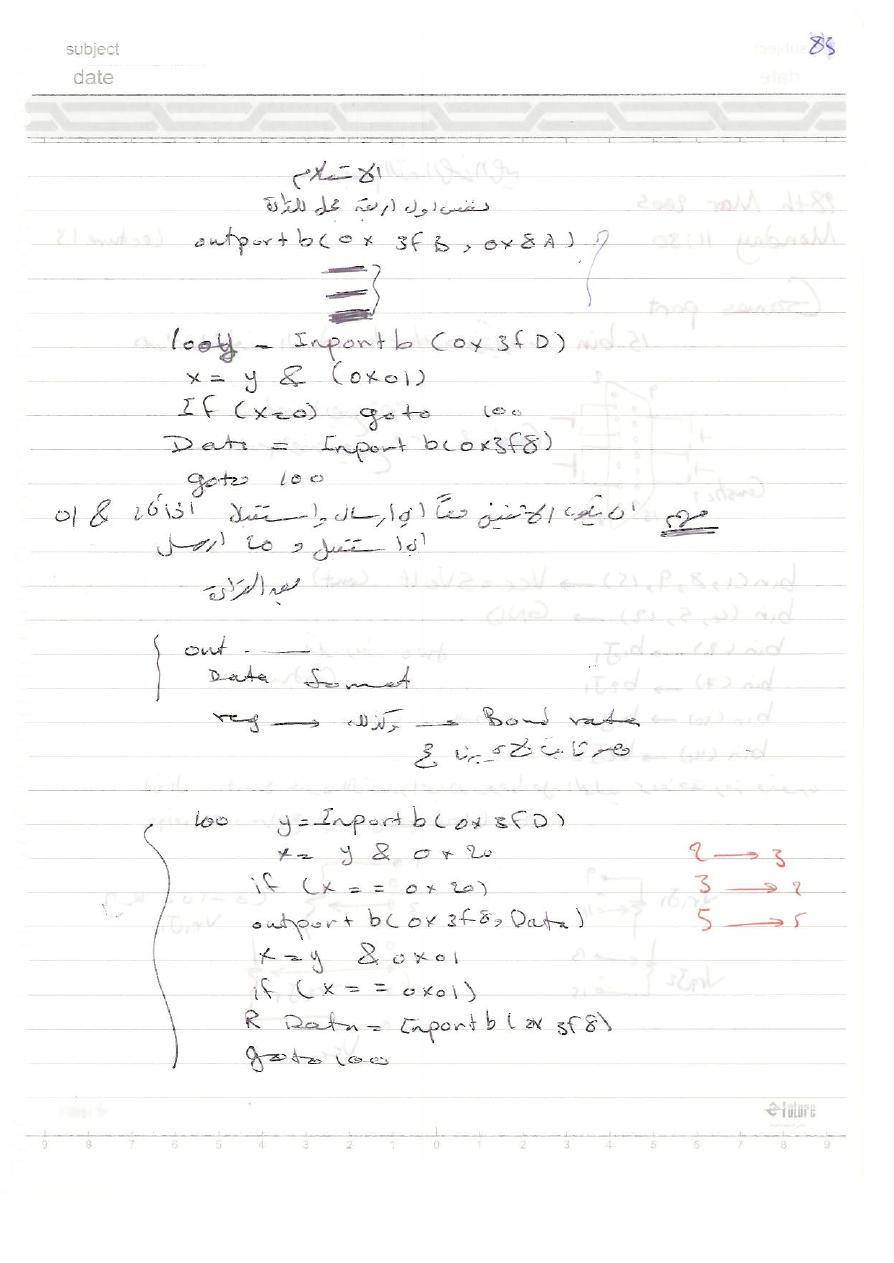 subject
83
date
الاستلام
نفس اول اربعة جمل للقراءة
outportb(0x 3fB, 0x8A)
100 y = Inportb (0x 3fD)
x = y & (0x01)
If (x=0) goto 100
Data = Inportb(0x3f8)
goto 100
مهم ان يكون الاثنين معاً اي ارسال واستقبال اذا كان & 01
اي استقبل و 20 ارسل
out
Data format
reg → وكذلك → Baud rate
100 y = Inportb(0x3fD)
x = y & 0x20
2 → 3
if (x == 0x20)
3 → 2
outportb(0x3f8, Data)
5 → 5
x = y & 0x01
if (x == 0x01)
R Data = Inportb(0x 3f8)
goto 100
future
9 8 7 6 5 4 3 2 1 0 1 2 3 4 5 6 7 8 9